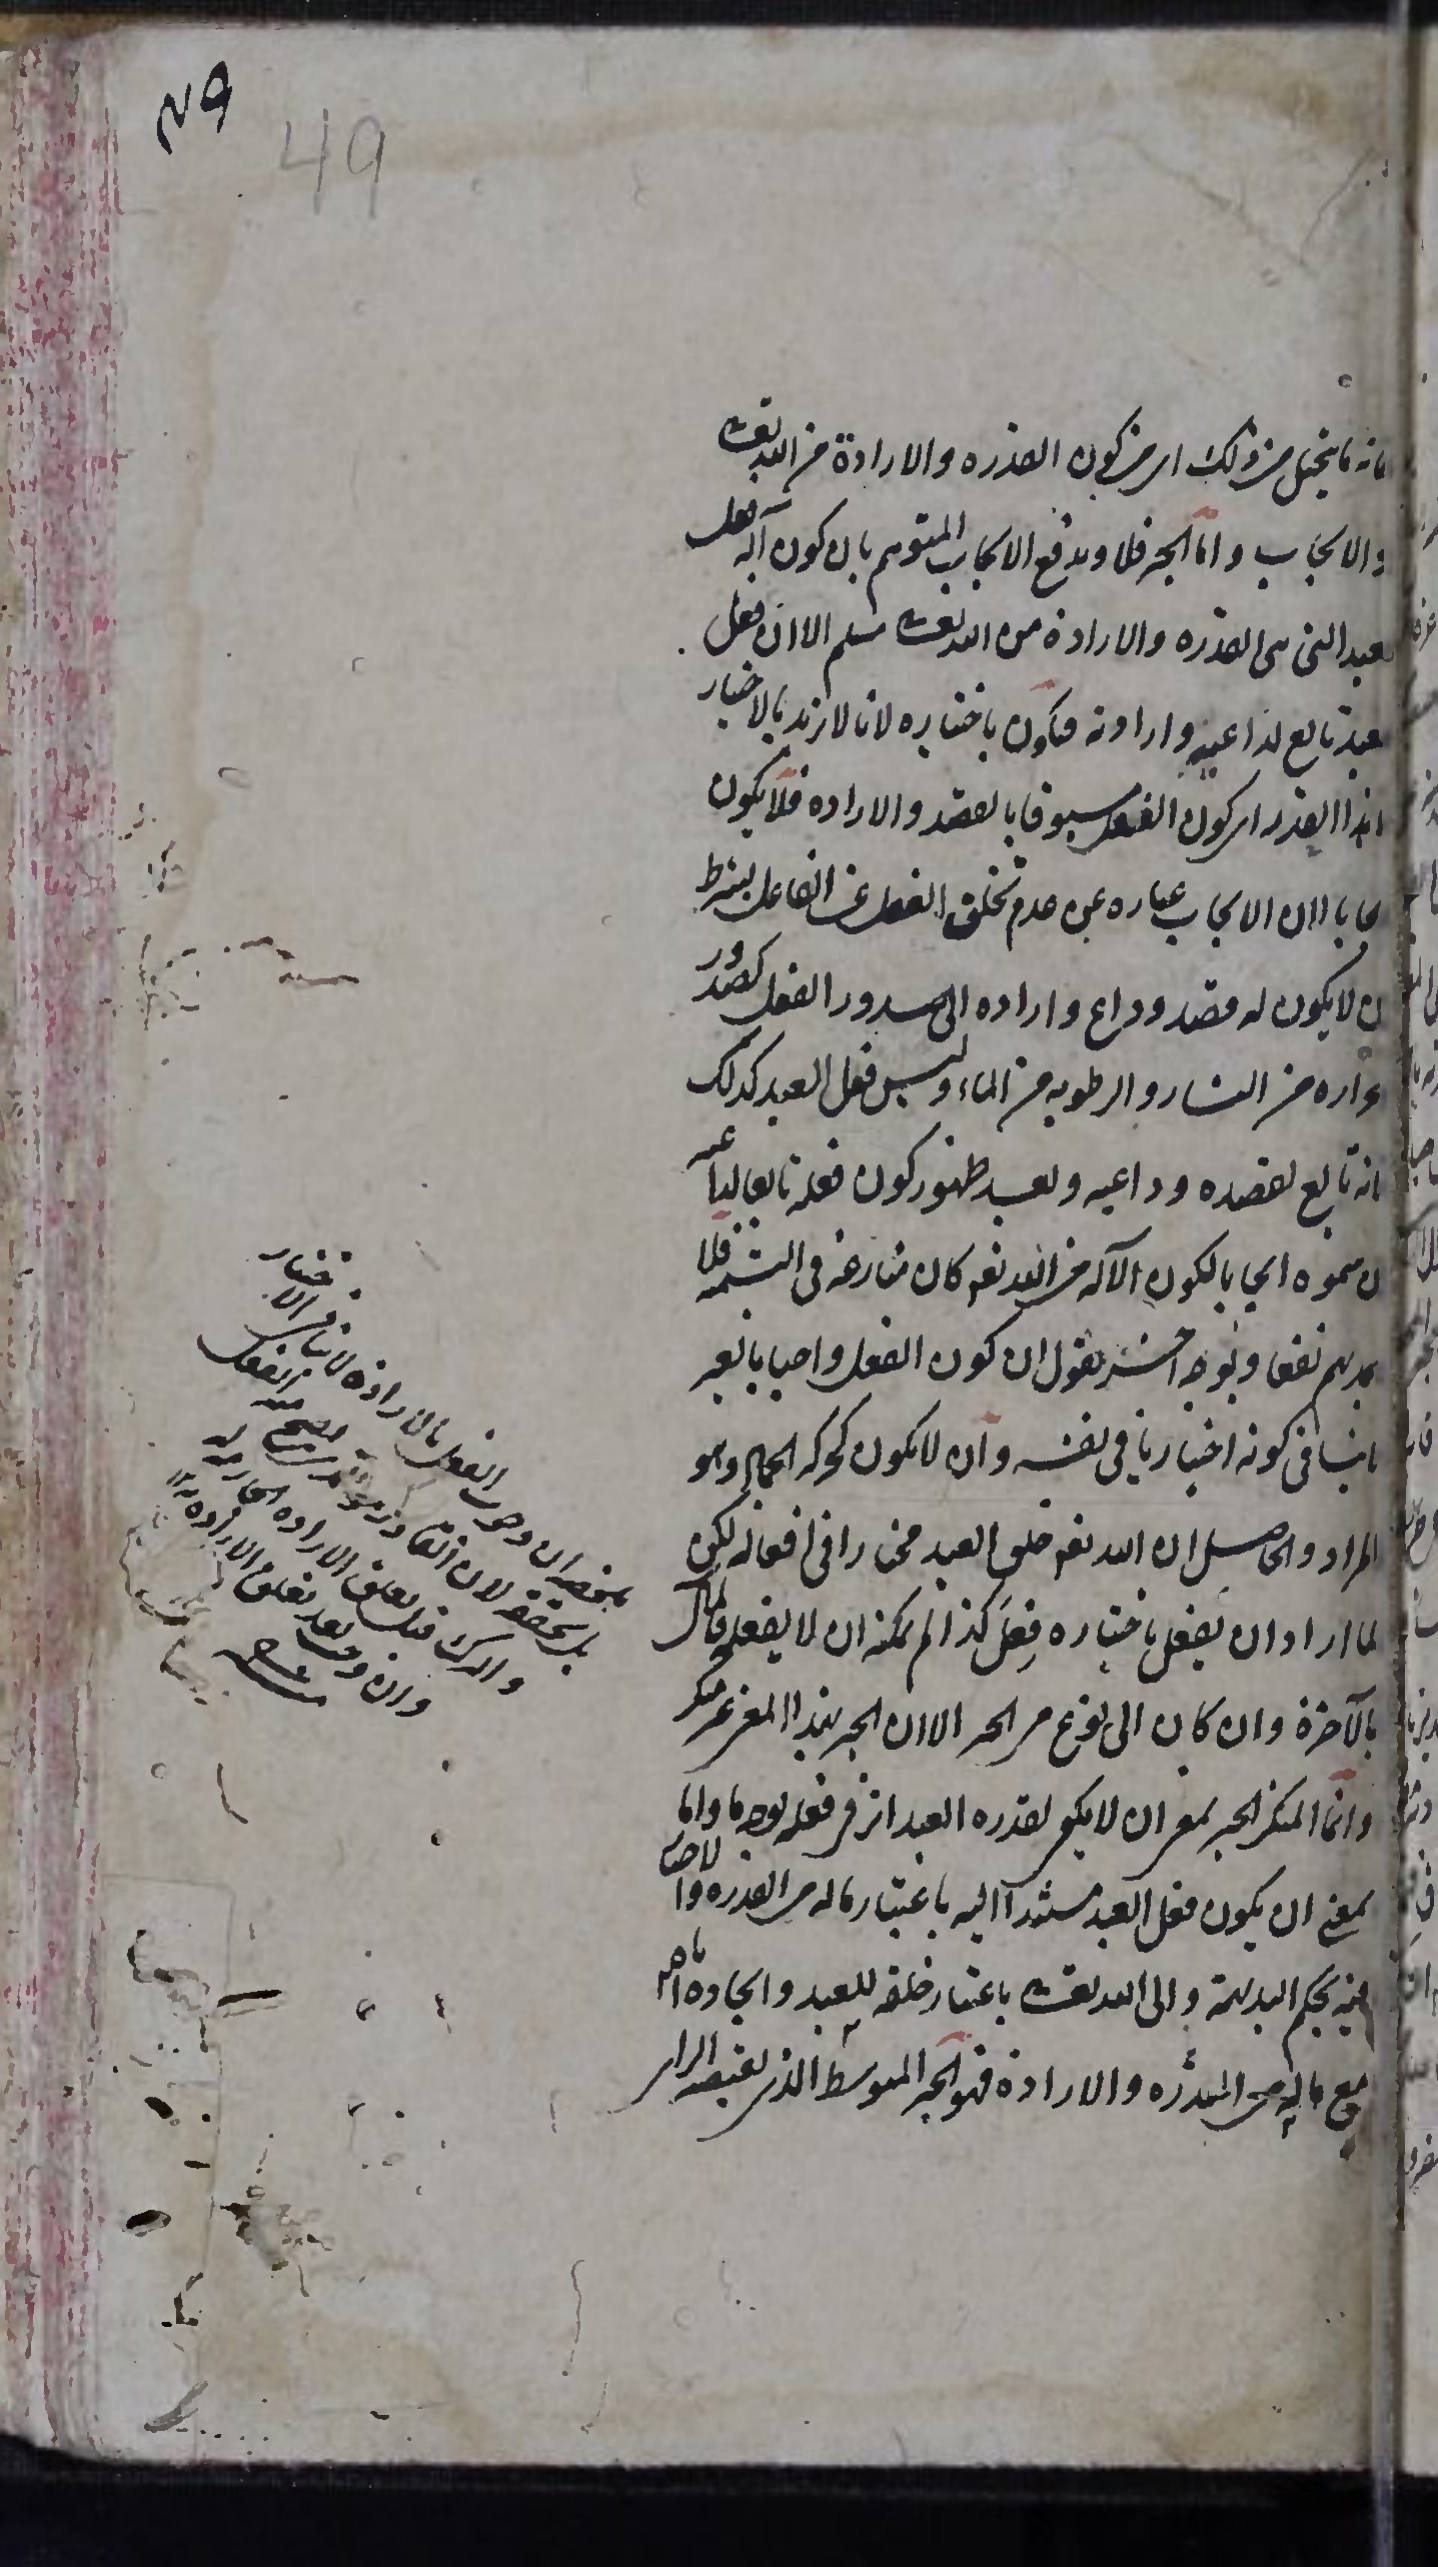 ٤٩
49
فانه ما يتخيل من ذلك اى من كون القدره والارادة من الله تعالى
والايجاب واما الجبر فلا ويدفع الايجاب المتوهم بان كون آلة فعل
العبد التى هى القدره والارادة من الله تعالى مسلم الا ان فعل
العبد تابع لداعيه وارادته فيكون باختياره لانا لا نريد بالاختيار
الا هذا القدر اى كون الفعل مسبوقا بالقصد والاراده فلا يكون
ايجابا اذ الايجاب عباره عن عدم تخلف الفعل عن الفاعل بشرط
ان لا يكون له قصد وداع واراده الى صدور الفعل كصدور
الحراره من النار والرطوبه من الماء وليس فعل العبد كذلك
فانه تابع لقصده وداعيه وبعد ظهور كون فعله تابعا لداعيه
ان سموه ايجابا لكون الآله من الله تعالى كان منازعه فى التسميه فلا
يجديهم نفعا وبوجه اخر نقول ان كون الفعل واجبا بالغير
لا ينافى كونه اختياريا فى نفسه وان لا يكون كحركه الجماد وهو
المراد والحاصل ان الله تعالى خلق العبد مختارا فى افعاله لكن
لما اراد ان يفعل باختياره فعل كذا لم يمكنه ان لا يفعله فالمآل
بالآخرة وان كان الى نوع من الجبر الا ان الجبر بهذا المعنى غير منكر
وانما المنكر الجبر بمعنى ان لا يكون لقدره العبد اثر فى فعله بوجه ما واما
بمعنى ان يكون فعل العبد مستندا اليه باعتبار ما له من القدره والاختيار
فيه بحكم البديهة والى الله تعالى باعتبار خلقه للعبد وايجاده اياه
مع ماله من القدره والارادة فهو الجبر المتوسط الذى يقتضيه الراى
بمعنى ان وجوب الفعل بالاراده لا ينافى الاختيار
بل يحققه لان القادر هو الذى يصح منه الفعل
والترك قبل تعلق الاراده الجازمه له
وان وجب بعد تعلق الاراده به